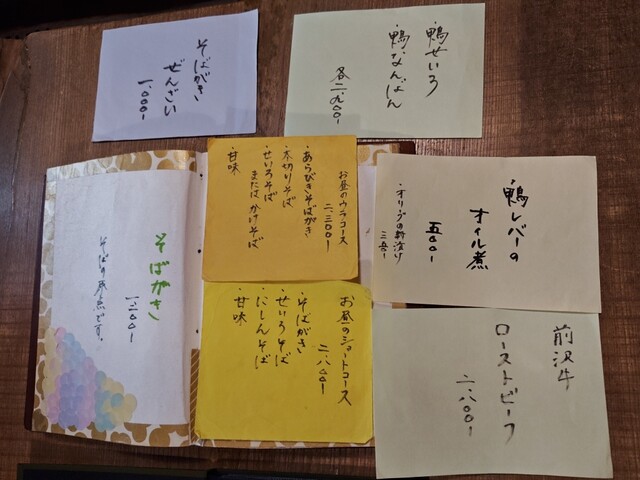 そばがき
ぜんざい
一、〇〇〇-
・鴨せいろ
・鴨なんばん
各二、九〇〇-
そばがき
一、二〇〇-
そばの原点です。
お昼のウラコース
二、三〇〇-
・あらびきそばがき
・木切りそば
・せいろそば
またはかけそば
・甘味
お昼のショートコース
二、八〇〇-
・そばがき
・せいろそば
・にしんそば
・甘味
・鴨レバーの
オイル煮
五〇〇-
・オリーブの新漬け
三五〇-
前沢牛
ローストビーフ
二、八〇〇-